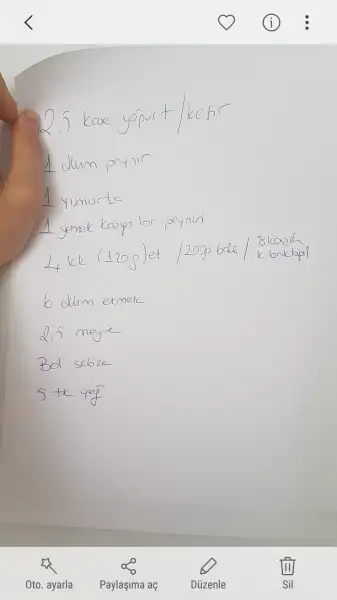 2,5 kase yoğurt/kefir
1 dilim peynir
1 yumurta
1 yemek kaşığı lor peyniri
4 kk (120g) et / 200g balık / 8 kaşık k. baklagil
6 dilim ekmek
2,5 meyve
Bol sebze
5 tk yağ
Oto. ayarla
Paylaşıma aç
Düzenle
Sil